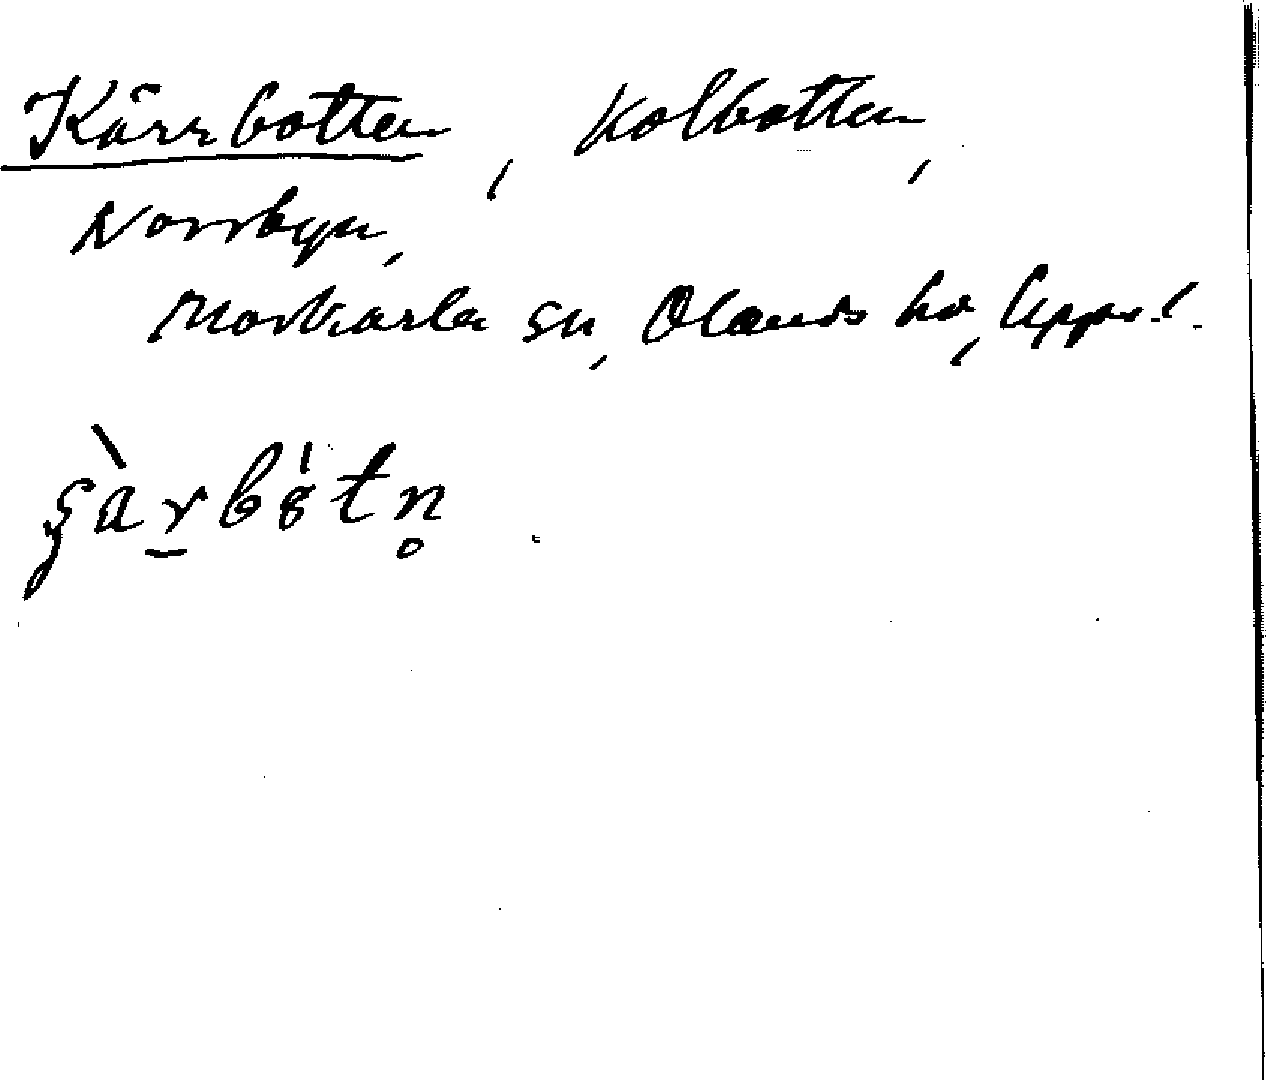 Kärrbotten, Kolbotten,
Norrbyn,
Morkarla sn, Olands hd, Uppl.